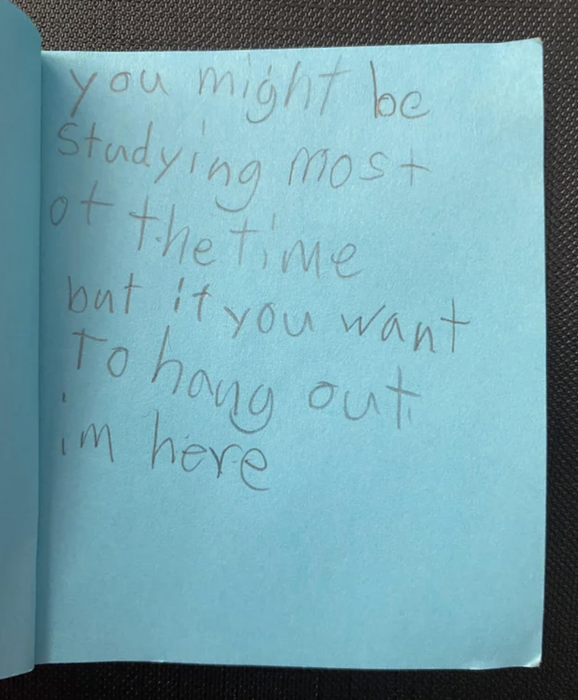 you might be
studying most
of the time
but if you want
To hang out
im here